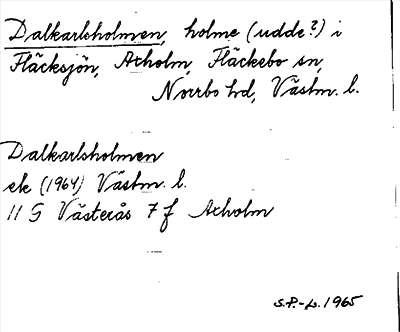 Dalkarlsholmen, holme (udde?) i
Fläcksjön, Arholm, Fläckebo sn,
Norrbo hd, Västm. l.
Dalkarlsholmen
ek (1964) Västm. l.
11 G Västerås 7 f Arholm
S.P-n. 1965